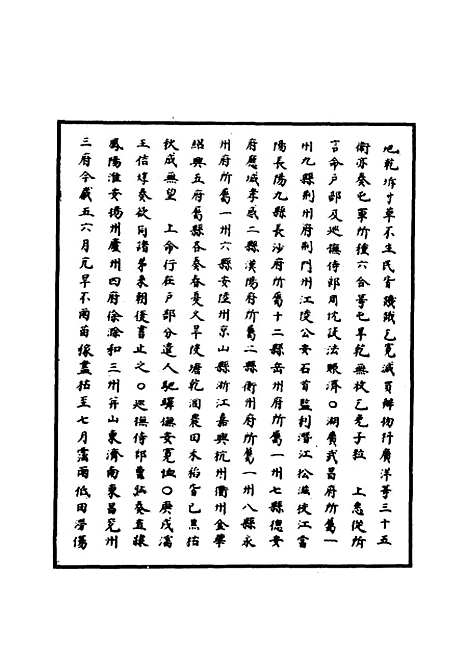 地乾坼寸草不生民皆饑餓乞寬減買辦物件廣洋等三十五
衛亦奏屯軍所種六合等屯旱乾無收乞免子粒　上悉從所
言命戶部及巡撫侍郎周忱設法賑濟○湖廣武昌府所屬一
州九縣荊州府荊門州江陵公安石首監利潛江松滋枝江當
陽長陽九縣長沙府所屬十二縣岳州府所屬一州七縣德安
府應城孝感二縣漢陽府所屬二縣衡州府所屬一州八縣永
州府所屬一州六縣安陸州京山縣浙江嘉興杭州衢州金華
紹興五府屬縣各奏春夏久旱陂塘乾涸農田禾稻皆已焦枯
秋成無望　上命行在戶部分遣人馳驛撫安寬恤○庚戌瀋
王佶焞奏欲同諸弟來朝復書止之○巡撫侍郎曹弘奏直隸
鳳陽淮安揚州廬州四府徐滁和三州并山東濟南東昌兗州
三府今歲五六月亢旱不雨苗稼盡枯至七月霪雨低田渰傷